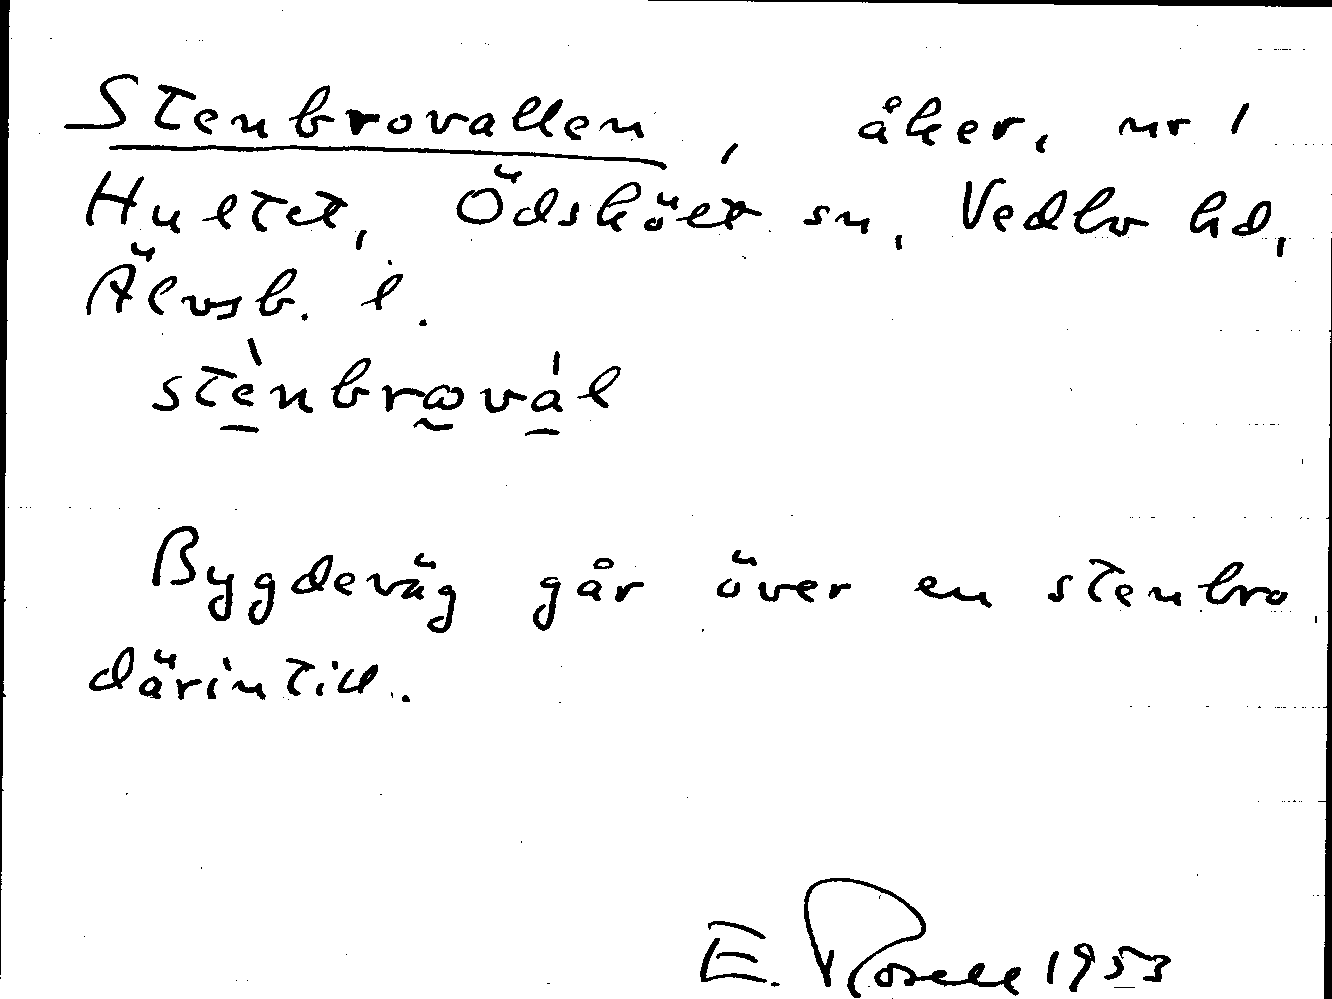 Stenbrovallen, åker, nr 1
Hultet, Ödskölt sn, Vedbo hd,
Älvsb. l.
stènbrωvál
Bygdeväg går över en stenbro
därintill.
E. Rosell 1953